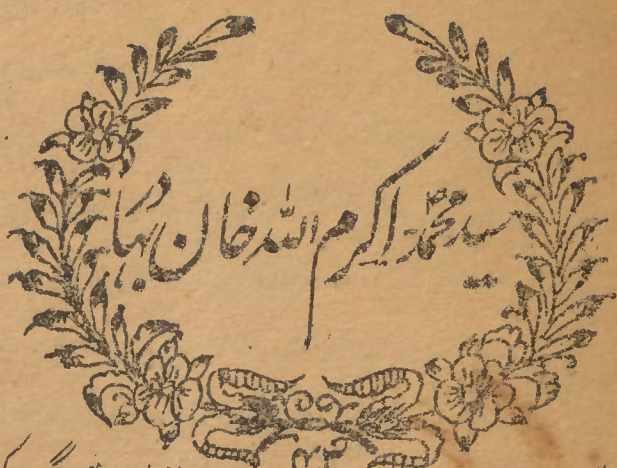 سید محمد اکرم اللہ خان بہادر